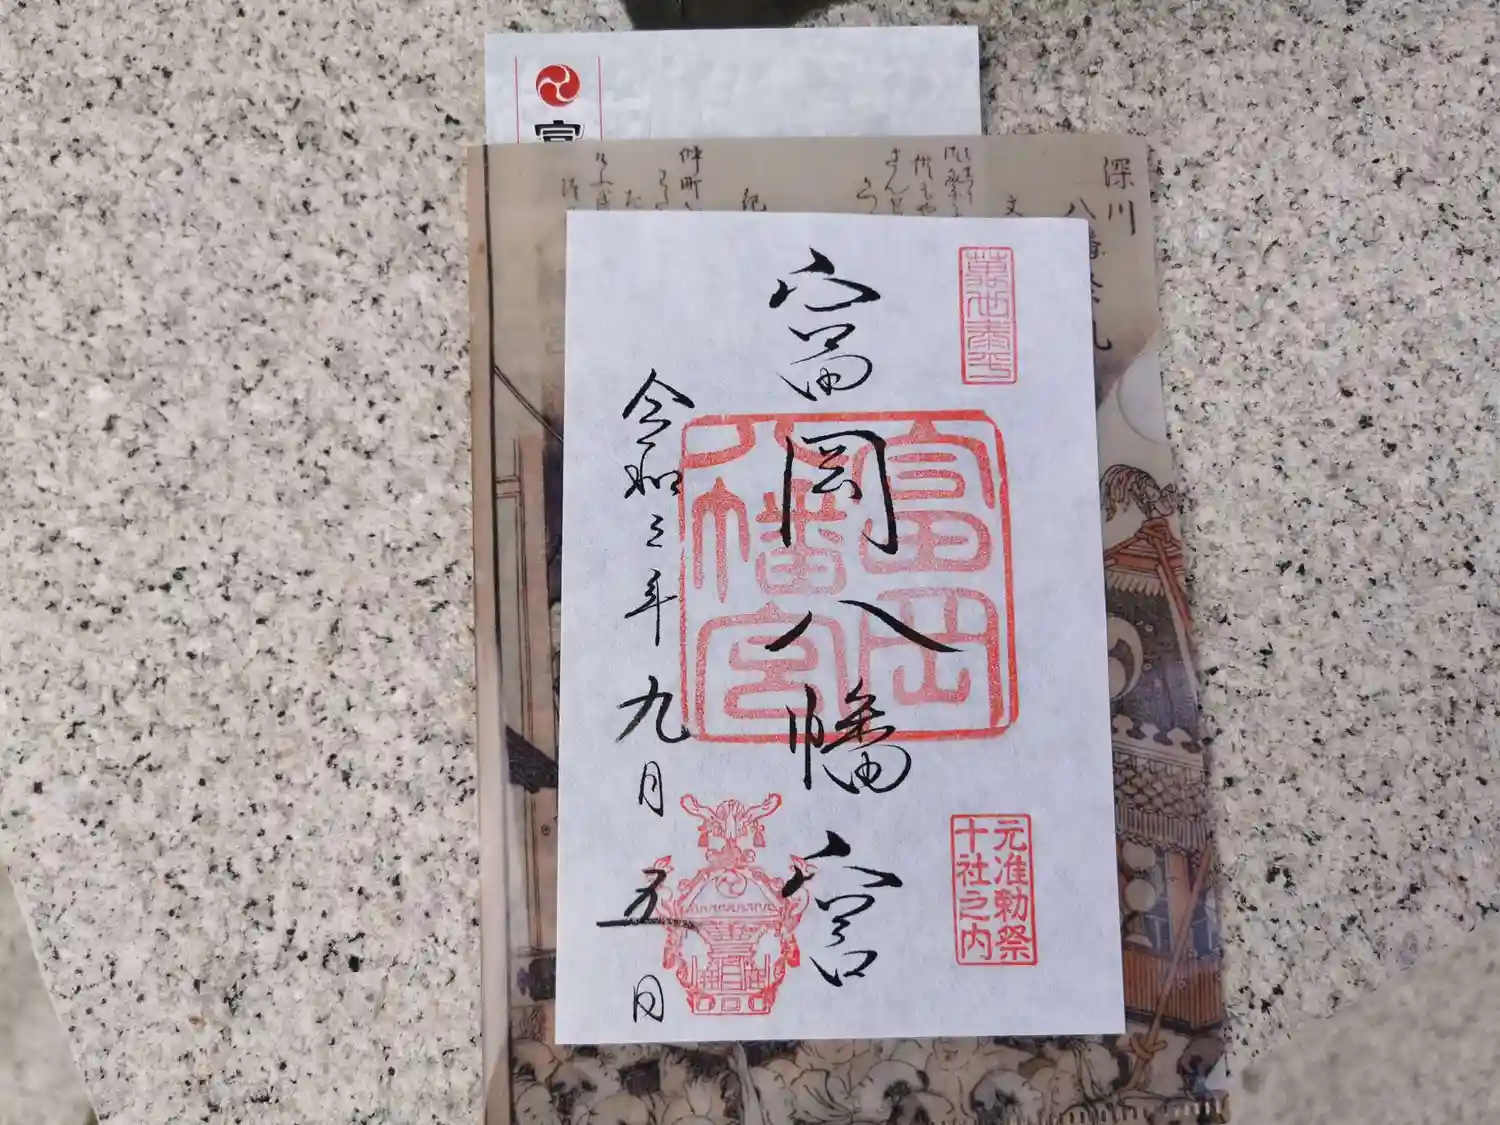 富岡八幡宮
令和三年九月五日
萬世泰平
富岡
八幡宮
元准勅祭
十社之内
富
深川
八幡祭礼